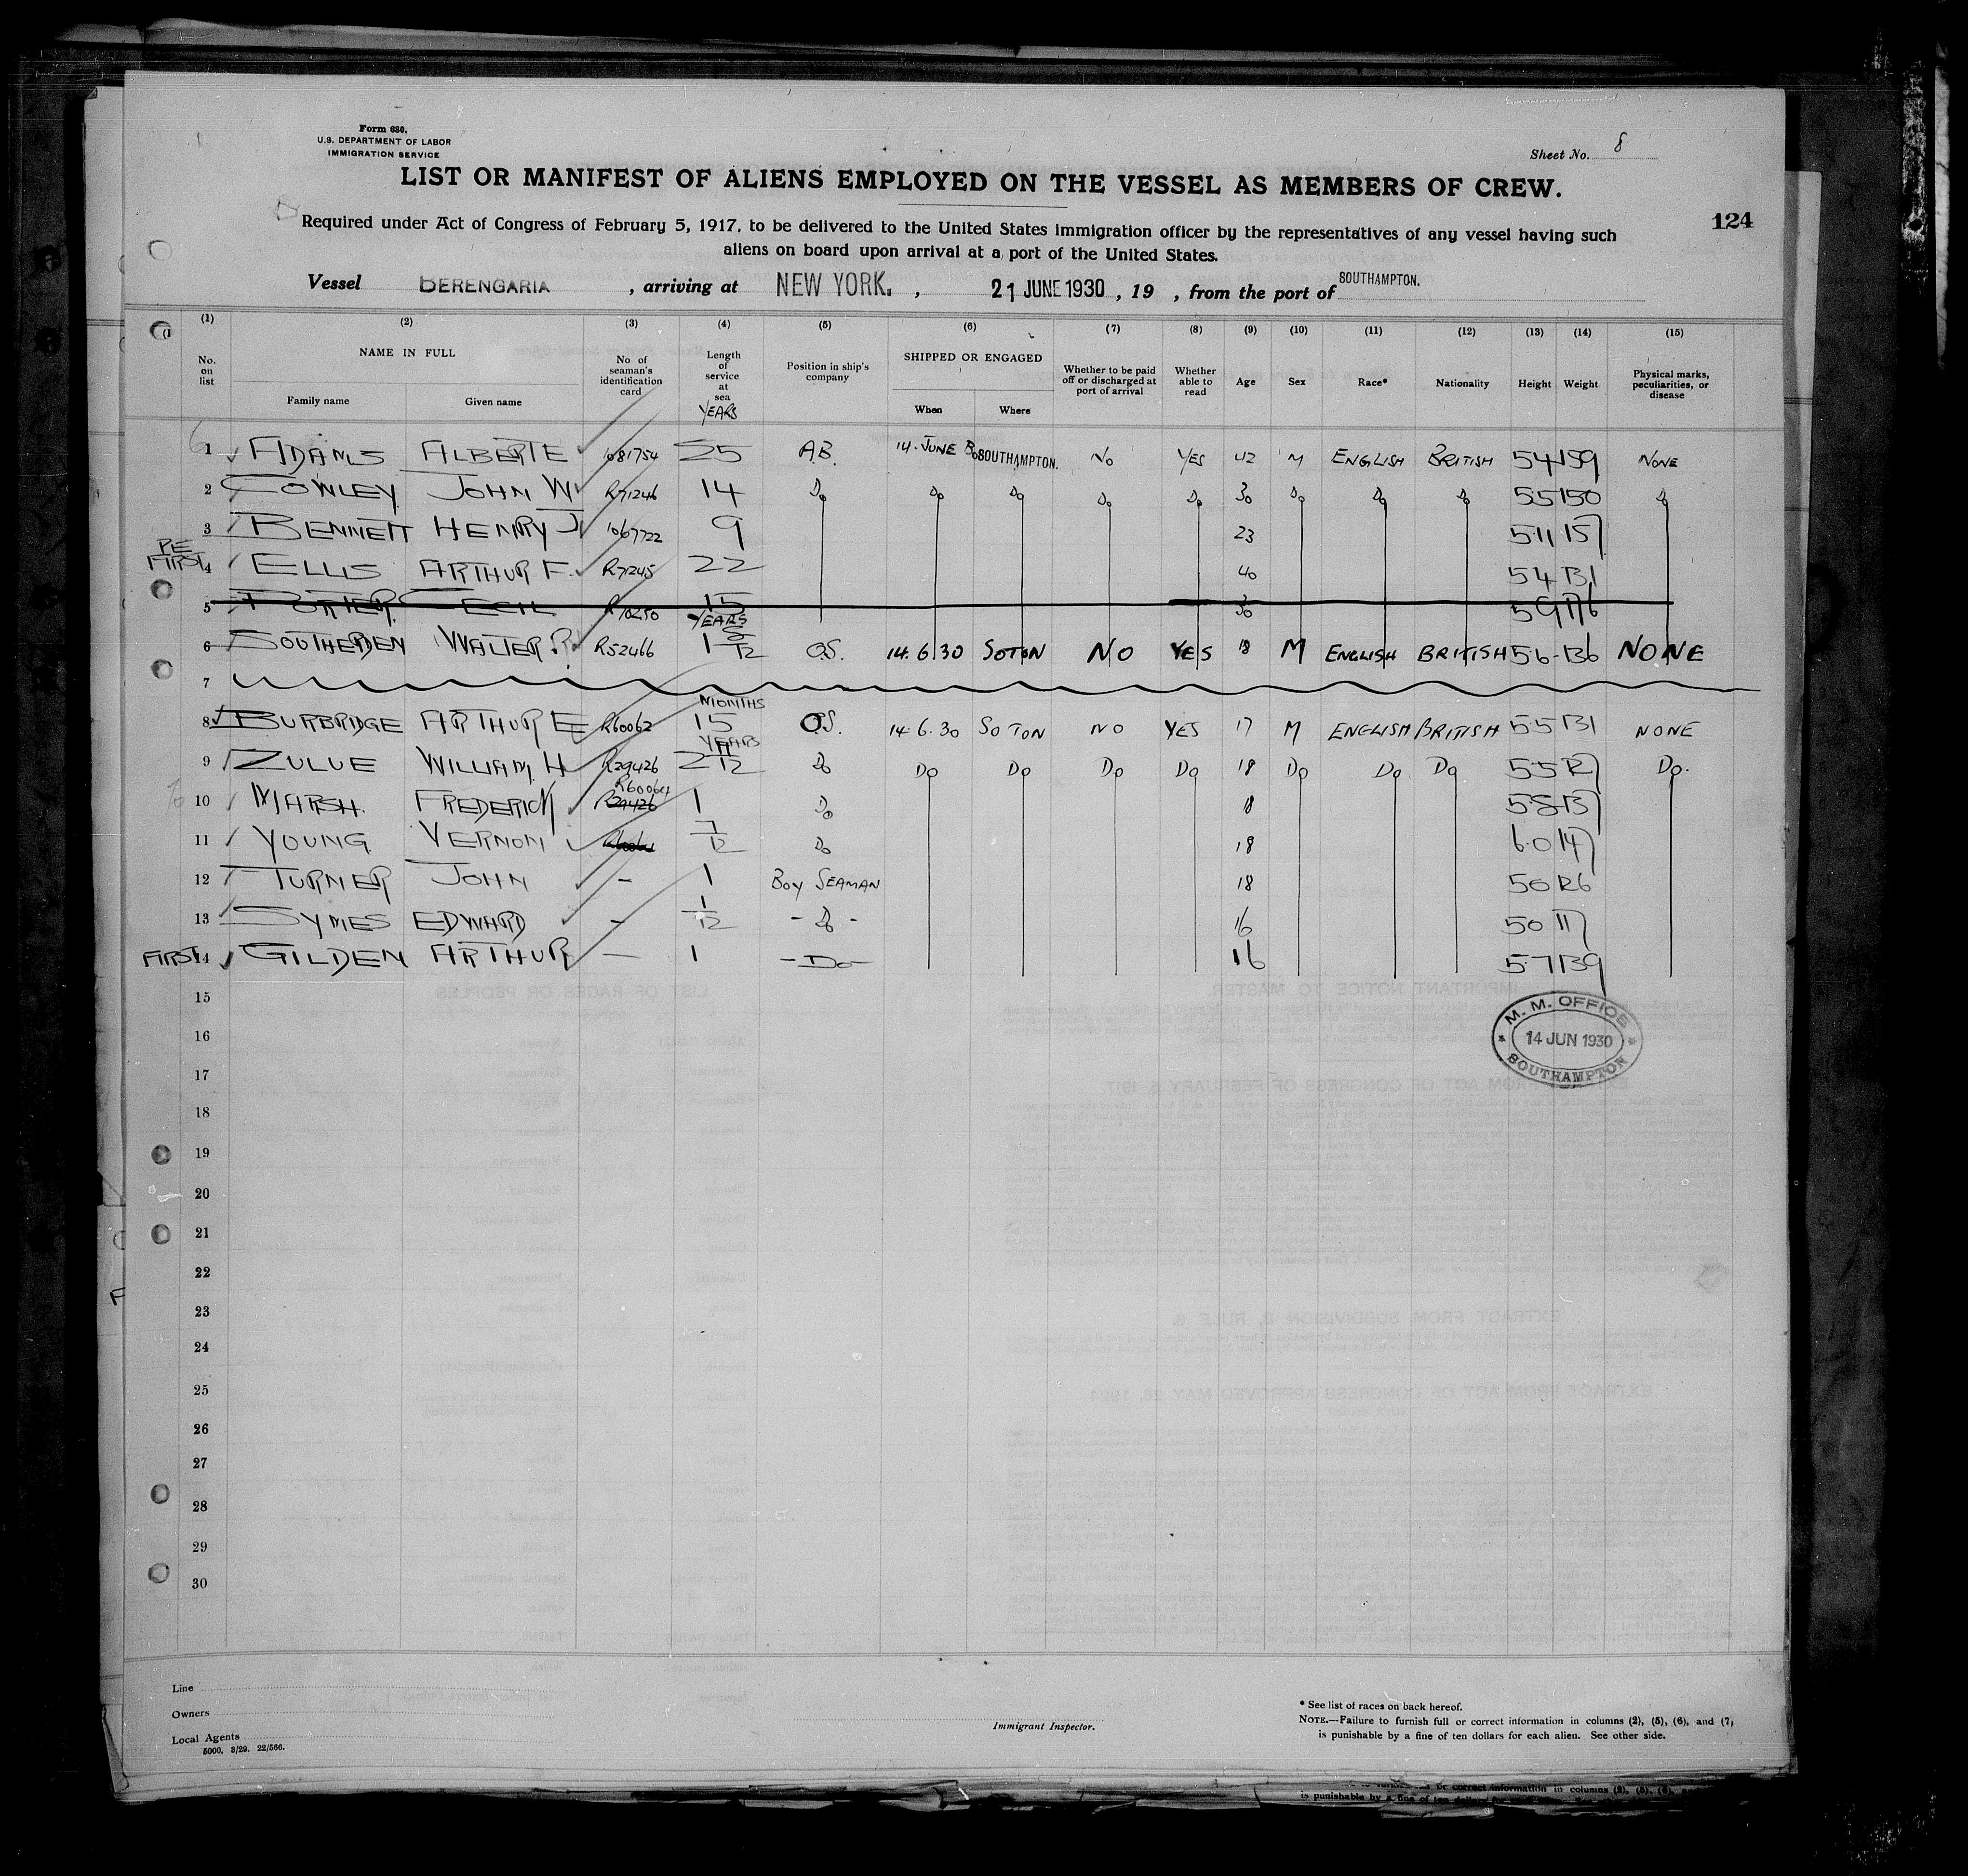 Form 680.
U.S. DEPARTMENT OF LABOR
IMMIGRATION SERVICE
Sheet No. 8
LIST OR MANIFEST OF ALIENS EMPLOYED ON THE VESSEL AS MEMBERS OF CREW.
124
Required under Act of Congress of February 5, 1917, to be delivered to the United States immigration officer by the representatives of any vessel having such
aliens on board upon arrival at a port of the United States.
Vessel BERENGARIA , arriving at NEW YORK. , 21 JUNE 1930 , 19 , from the port of SOUTHAMPTON.
(1) (2) (3) (4) (5) (6) (7) (8) (9) (10) (11) (12) (13) (14) (15)
No. on list NAME IN FULL Family name Given name No of seaman's identification card Length of service at sea YEARS Position in ship's company SHIPPED OR ENGAGED When Where Whether to be paid off or discharged at port of arrival Whether able to read Age Sex Race* Nationality Height Weight Physical marks, peculiarities, or disease
1 ADAMS ALBERT E 1081754 25 A.B. 14. JUNE SOUTHAMPTON. NO YES 42 M ENGLISH BRITISH 5.4 159 NONE
2 COWLEY JOHN W R71246 14 Do Do Do Do Do 30 Do Do Do 5.5 150 Do
3 BENNETT HENRY J 1067722 9 23 5.11 157
PE FIRST 4 ELLIS ARTHUR F. R71245 22 40 5.4 131
5 POTTER CECIL R10250 15 30 5.9 176
6 SOUTHERDEN WALTER R. R52466 YEARS 1 8/12 O.S. 14.6.30 SOTON NO YES 18 M ENGLISH BRITISH 5.6 136 NONE
7
8 BURBRIDGE ARTHUR E R60062 MONTHS 15 O.S. 14.6.30 SOTON NO YES 17 M ENGLISH BRITISH 5.5 131 NONE
9 ZULUE WILLIAM. H R29426 YEARS 2 /12 Do Do Do Do Do 18 Do Do Do 5.5 127 Do.
10 MARSH. FREDERICK R60064 R29426 1 Do 18 5.8 137
11 YOUNG VERNON 7/12 Do 18 6.0 147
12 TURNER JOHN - 1 BOY SEAMAN 18 5.0 126
13 SYMES EDWARD - 1/12 - Do - 16 5.0 117
FIRST 14 GILDEN ARTHUR - 1 - Do - 16 5.7 139
15
M. M. OFFICE
14 JUN 1930
SOUTHAMPTON
16
17
18
19
20
21
22
23
24
25
26
27
28
29
30
Line
Owners
Local Agents
5000. 3/29. 22/566.
Immigrant Inspector.
* See list of races on back hereof.
NOTE.—Failure to furnish full or correct information in columns (2), (5), (6), and (7)
is punishable by a fine of ten dollars for each alien. See other side.